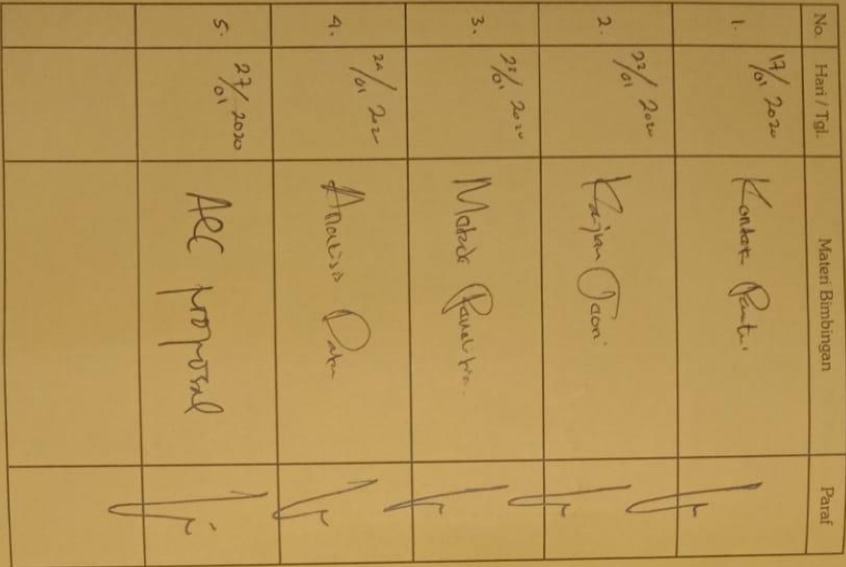 No. Hari / Tgl. Materi Bimbingan Paraf
1. 17/01 2020 Kontak
2. 22/01 2020 Kajian Teori
3. 2020 Metode Penelitian
4. 24/01 202 Analisis Data
5. 27/01 2020 ACC proposal